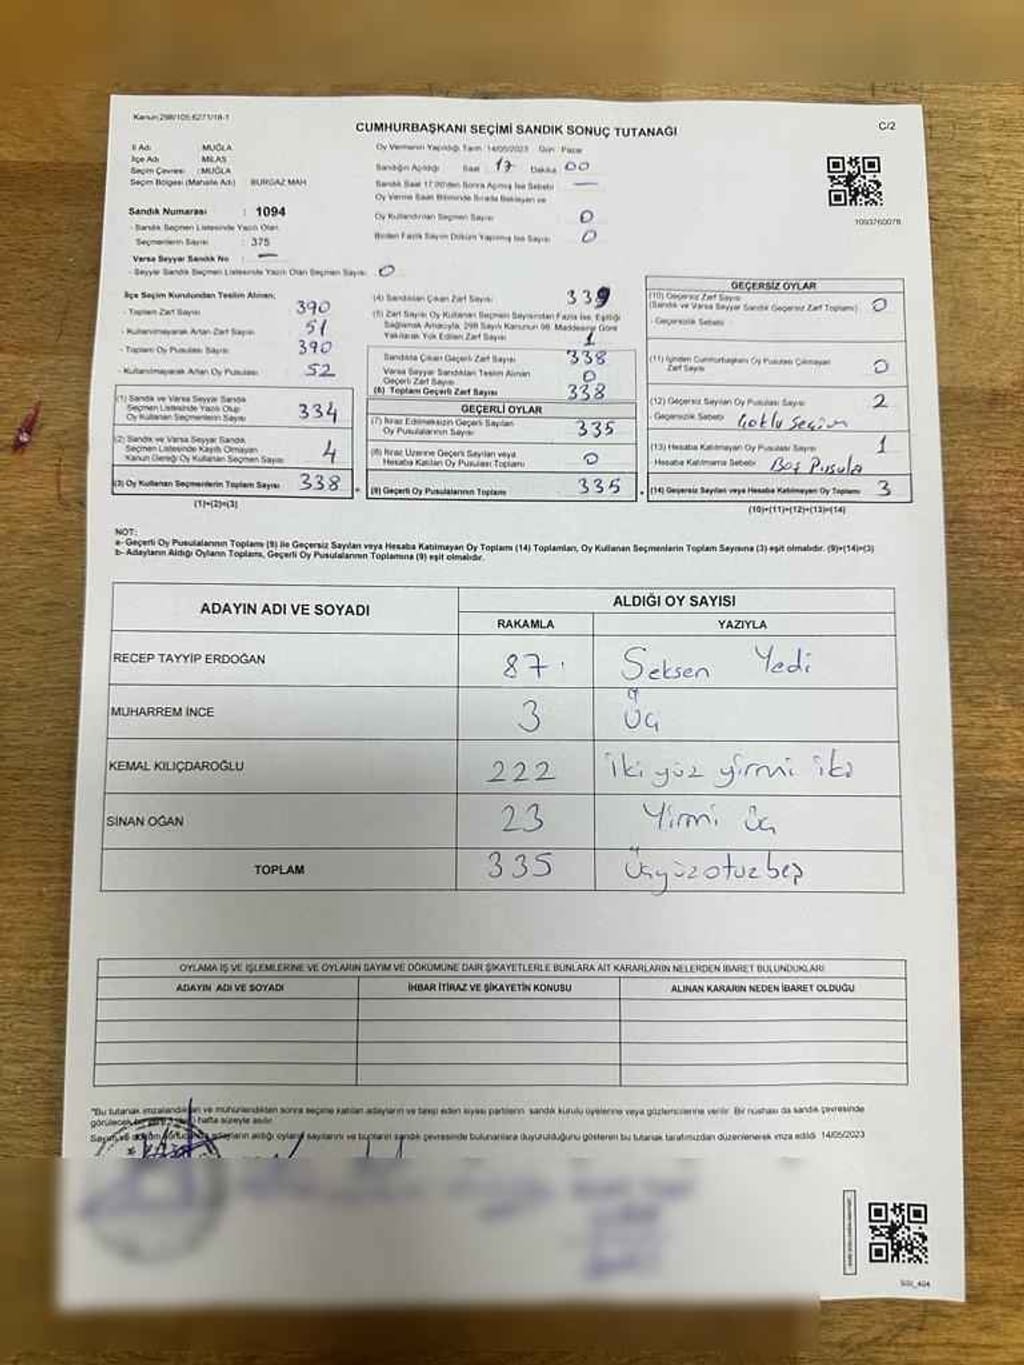 Kanun:298/105,6271/18-1
CUMHURBAŞKANI SEÇİMİ SANDIK SONUÇ TUTANAĞI
C/2
İl Adı : MUĞLA
İlçe Adı : MİLAS
Seçim Çevresi : MUĞLA
Seçim Bölgesi (Mahalle Adı) : BURGAZ MAH
Sandık Numarası : 1094
- Sandık Seçmen Listesinde Yazılı Olan
Seçmenlerin Sayısı : 375
Varsa Seyyar Sandık No : —
- Seyyar Sandık Seçmen Listesinde Yazılı Olan Seçmen Sayısı : 0
Oy Vermenin Yapıldığı Tarih : 14/05/2023 Gün : Pazar
Sandığın Açıldığı Saat : 17 Dakika : 00
Sandık Saat 17.00'den Sonra Açılmış İse Sebebi —
Oy Verme Saati Bitiminde Sırada Bekleyen ve
Oy Kullandırılan Seçmen Sayısı 0
Birden Fazla Sayım Döküm Yapılmış İse Sayısı 0
1093760078
İlçe Seçim Kurulundan Teslim Alınan;
- Toplam Zarf Sayısı 390
- Kullanılmayarak Artan Zarf Sayısı 51
- Toplam Oy Pusulası Sayısı 390
- Kullanılmayarak Artan Oy Pusulası 52
(1) Sandık ve Varsa Seyyar Sandık
Seçmen Listesinde Yazılı Olup
Oy Kullanan Seçmenlerin Sayısı 334
(2) Sandık ve Varsa Seyyar Sandık
Seçmen Listesinde Kayıtlı Olmayan
Kanun Gereği Oy Kullanan Seçmen Sayısı 4
(3) Oy Kullanan Seçmenlerin Toplam Sayısı 338
(1)+(2)=(3)
(4) Sandıktan Çıkan Zarf Sayısı 339
(5) Zarf Sayısı Oy Kullanan Seçmen Sayısından Fazla İse, Eşitliği
Sağlamak Amacıyla, 298 Sayılı Kanunun 98. Maddesine Göre
Yakılarak Yok Edilen Zarf Sayısı 1
Sandıkta Çıkan Geçerli Zarf Sayısı 338
Varsa Seyyar Sandıktan Teslim Alınan
Geçerli Zarf Sayısı 0
(6) Toplam Geçerli Zarf Sayısı 338
GEÇERLİ OYLAR
(7) İtiraz Edilmeksizin Geçerli Sayılan
Oy Pusulalarının Sayısı 335
(8) İtiraz Üzerine Geçerli Sayılan veya
Hesaba Katılan Oy Pusulası Toplamı 0
(9) Geçerli Oy Pusulalarının Toplamı 335
GEÇERSİZ OYLAR
(10) Geçersiz Zarf Sayısı
(Sandık ve Varsa Seyyar Sandık Geçersiz Zarf Toplamı) 0
- Geçersizlik Sebebi :
(11) İçinden Cumhurbaşkanı Oy Pusulası Çıkmayan
Zarf Sayısı 0
(12) Geçersiz Sayılan Oy Pusulası Sayısı 2
- Geçersizlik Sebebi : Çoklu Seçim
(13) Hesaba Katılmayan Oy Pusulası Sayısı 1
- Hesaba Katılmama Sebebi : Boş Pusula
(14) Geçersiz Sayılan veya Hesaba Katılmayan Oy Toplamı 3
(10)+(11)+(12)+(13)=(14)
NOT:
a- Geçerli Oy Pusulalarının Toplamı (9) ile Geçersiz Sayılan veya Hesaba Katılmayan Oy Toplamı (14) Toplamları, Oy Kullanan Seçmenlerin Toplam Sayısına (3) eşit olmalıdır. (9)+(14)=(3)
b- Adayların Aldığı Oyların Toplamı, Geçerli Oy Pusulalarının Toplamına (9) eşit olmalıdır.
ADAYIN ADI VE SOYADI
ALDIĞI OY SAYISI
RAKAMLA YAZIYLA
RECEP TAYYİP ERDOĞAN 87 Seksen Yedi
MUHARREM İNCE 3 Üç
KEMAL KILIÇDAROĞLU 222 İki yüz yirmi iki
SİNAN OĞAN 23 Yirmi üç
TOPLAM 335 Üçyüzotuzbeş
OYLAMA İŞ VE İŞLEMLERİNE VE OYLARIN SAYIM VE DÖKÜMÜNE DAİR ŞİKAYETLERLE BUNLARA AİT KARARLARIN NELERDEN İBARET BULUNDUKLARI
ADAYIN ADI VE SOYADI İHBAR İTİRAZ VE ŞİKAYETİN KONUSU ALINAN KARARIN NEDEN İBARET OLDUĞU
"Bu tutanak imzalandıktan ve mühürlendikten sonra seçime katılan adayların ve takip eden siyasi partilerin sandık kurulu üyelerine veya gözlemcilerine verilir. Bir nüshası da sandık çevresinde
hafta süreyle asılır.
adayların aldığı oyların sayılarını ve bunların sandık çevresinde bulunanlara duyurulduğunu gösteren bu tutanak tarafımızdan düzenlenerek imza edildi. 14/05/2023